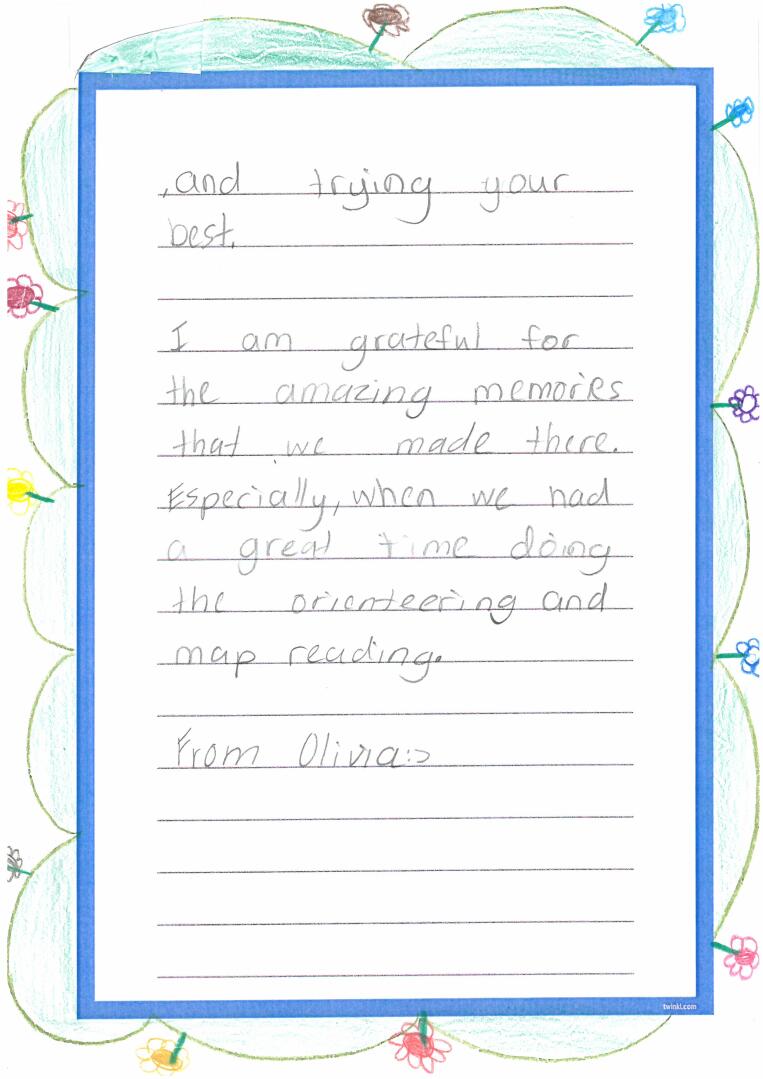 ,and trying your
best.
I am grateful for
the amazing memories
that we made there.
Especially, when we had
a great time doing
the orienteering and
map reading.
From Olivia:>
twinkl.com